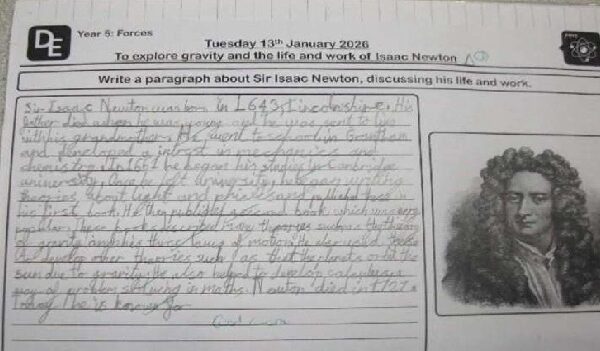 DE
Year 5: Forces
Tuesday 13th January 2026
To explore gravity and the life and work of Isaac Newton
Write a paragraph about Sir Isaac Newton, discussing his life and work.
Sir Isaac Newton was born in 1643 Lincolnshire. His
father died when he was young and he was sent to live
with his grandmother. He went to school in Grantham
and developed a intrest in mechanics and
chemistry. In 1661 he began his studies in
university, Once he left university, he began writing
theories about light and and published these in
his first book. He then published second book which was very
popular. These books described many theories such as the theory
of gravity and his three laws of motion. He also
develop other theories such as that the planets orbit the
sun due to gravity. He also helped to develop
way of problem solving in maths. Newton died in 1727.
today he is known for